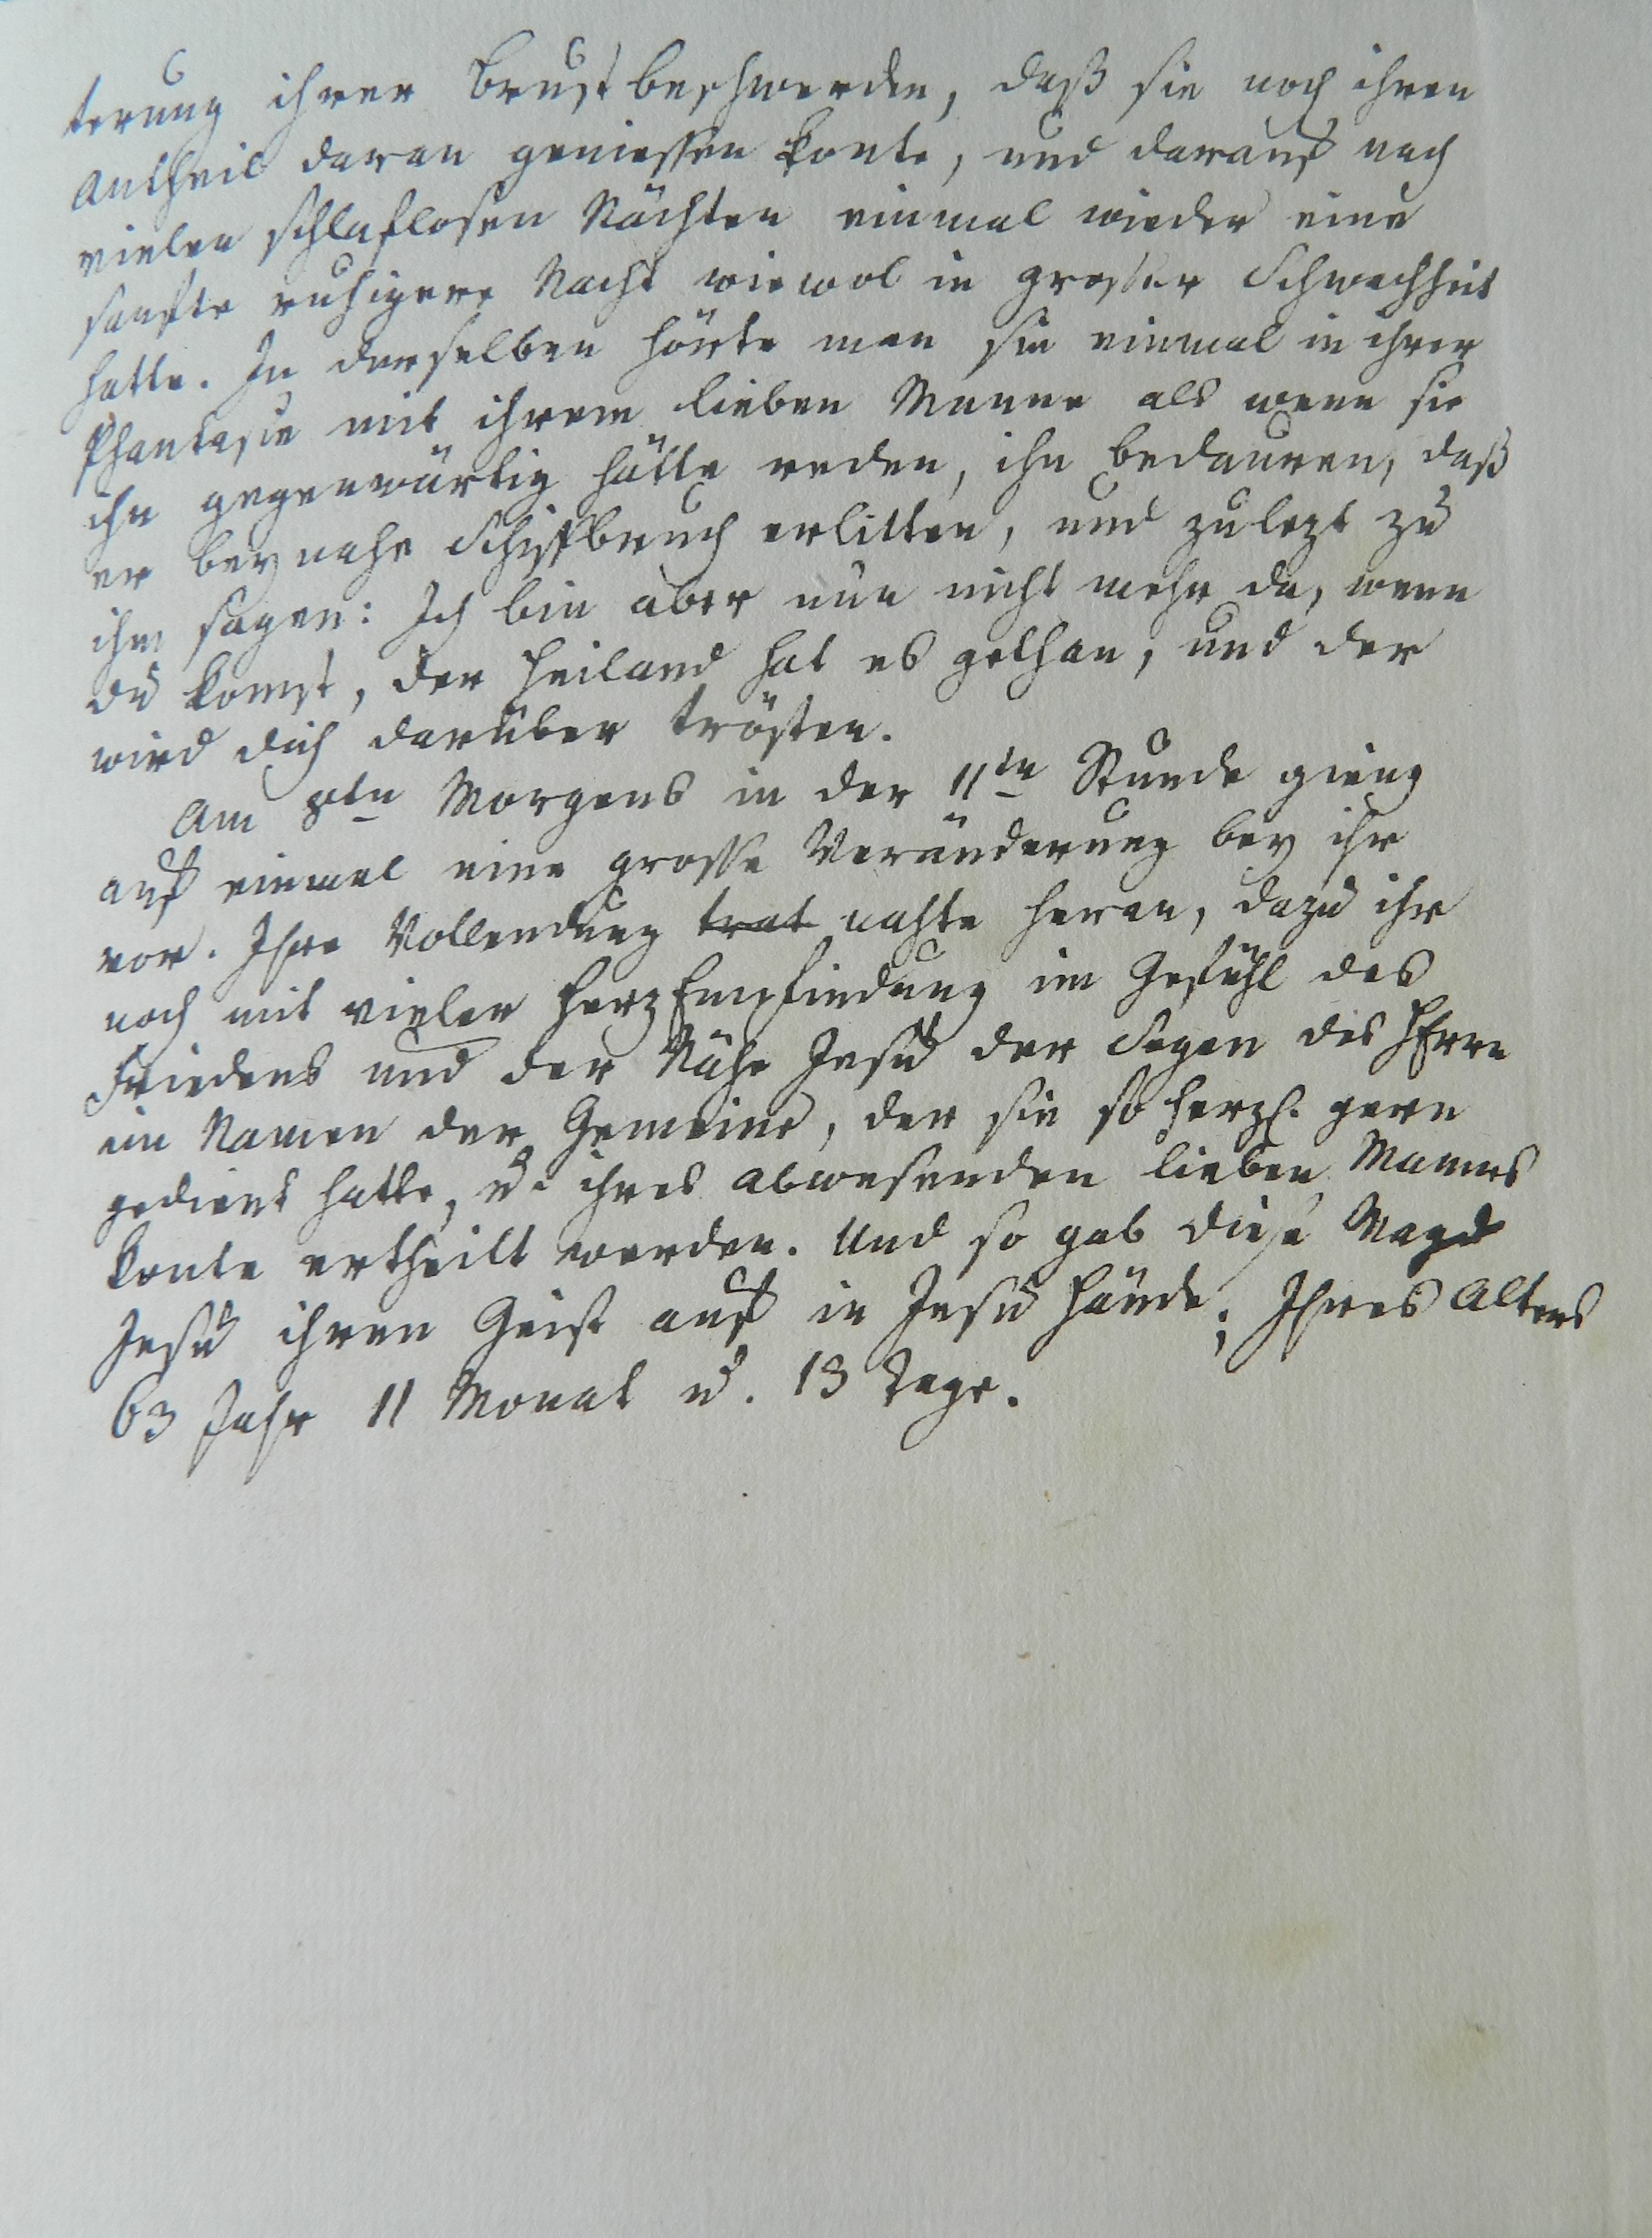 terung ihrer Brustbeschwerden, daß sie noch ihren
Antheil daran geniessen konte, und darauf nach
vielen schlaflosen Nächten einmal wieder eine
sanfte ruhigere Nacht wiewol in grosser Schwachheit
hatte. In derselben hörte man sie einmal in ihrer
Phantasie mit ihrem lieben Manne als wenn sie
ihn gegenwärtig hätte reden, ihn bedauren, daß
er beynahe Schifbruch erlitten, und zulezt zu
ihm sagen: Ich bin aber nun nicht mehr da, wenn
du komst, der Heiland hat es gethan, und der
wird dich darüber trösten.
Am 8ten Morgens in der 11ten Stunde gieng
auf einmal eine grosse Veränderung bey ihr
vor. Ihre Vollendung trat nahte heran, dazu ihr
noch mit vieler HerzEmpfindung im Gefühl des
Friedens und der Nähe Jesu der Segen des HErrn
im Namen der Gemeine, der sie so herzl. gern
gedient hatte, u. ihres abwesenden lieben Mannes
konte ertheilt werden. Und so gab diese Magd
Jesu ihren Geist auf in Jesu Hände; Ihres Alters
63 Jahr 11 Monat u. 13 Tage.